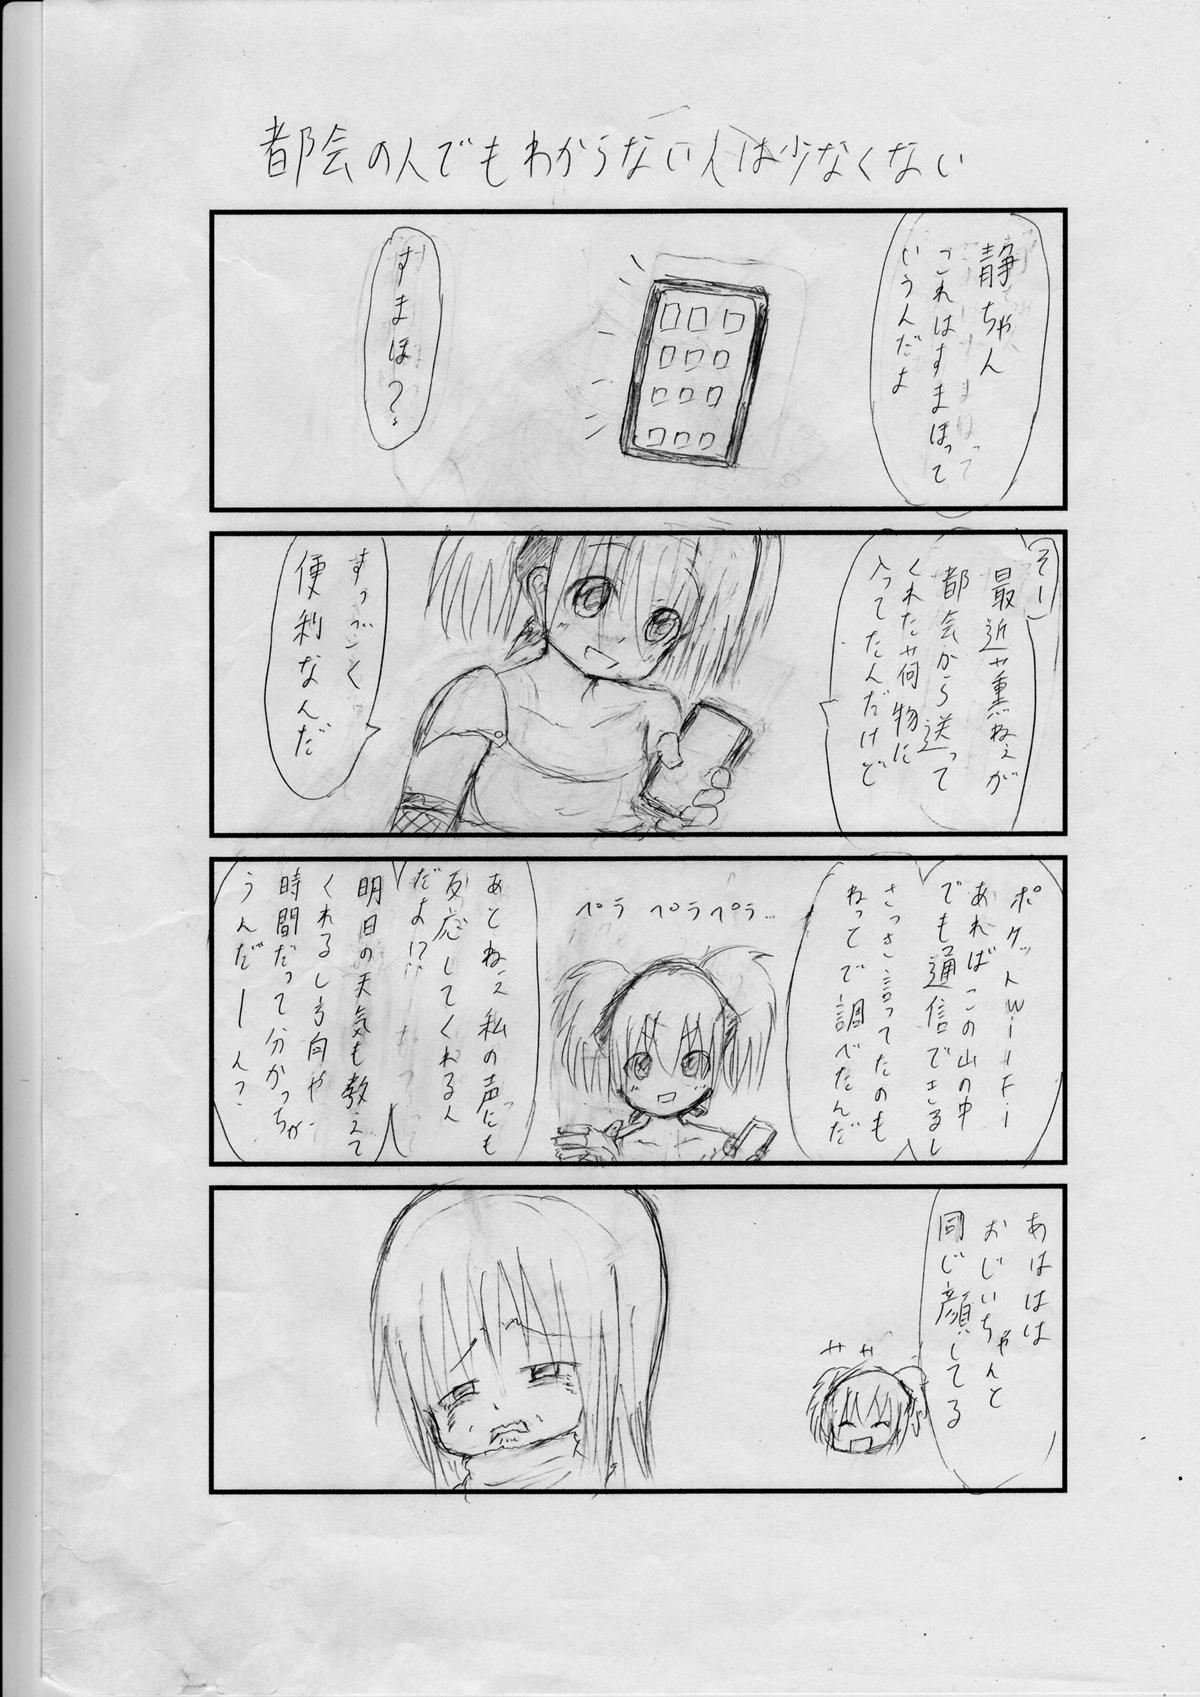 都会の人でもわからない人は少なくない
静ちゃん
これはすまほって
いうんだよ
すまほ?
そー
最近薫ねぇが
都会から送って
くれた荷物に
入ってたんだけど
すっごく
便利なんだ
ポケットWiーFi
あればこの山の中
でも通信できるし
さっき言ってたのも
ねってで調べたんだ
ペラ ペラペラ…
あとねぇ私の声にも
反応してくれるん
だよ!?
明日の天気も教えて
くれるし方向や
時間だって分かっちゃ
うんだーん?
あははは
おじいちゃんと
同じ顔してる